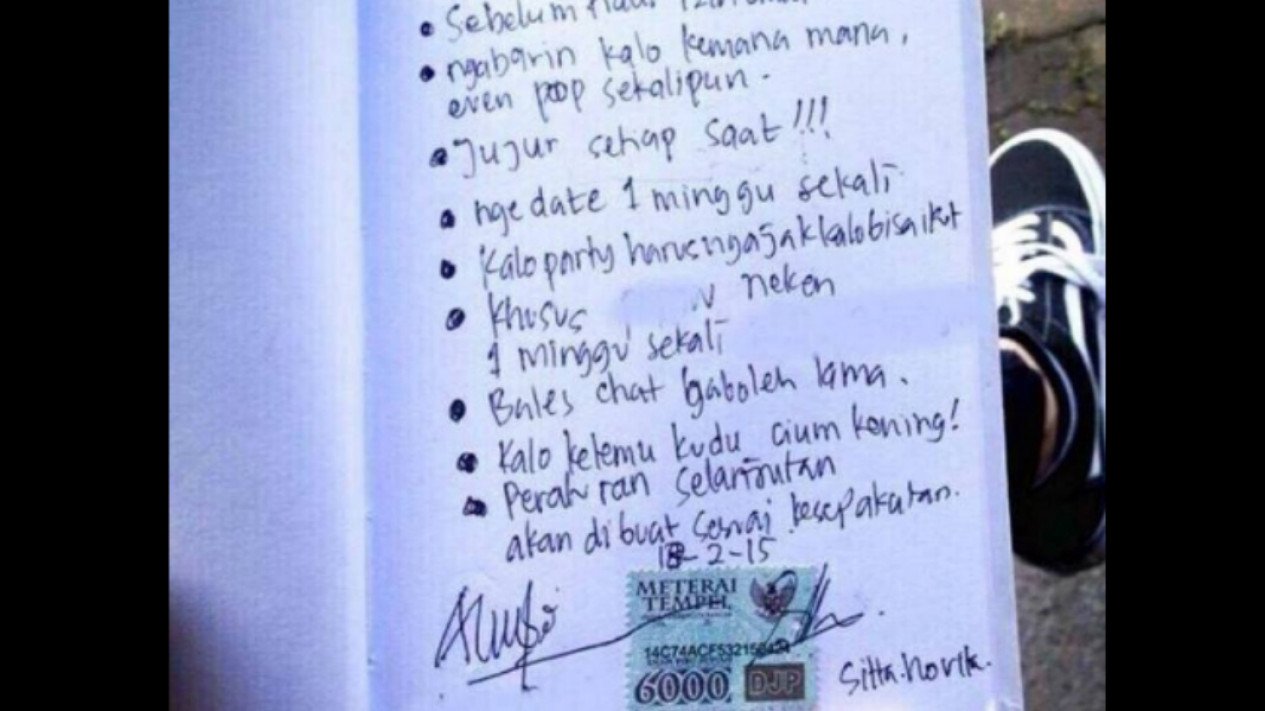 • Sebelum tidur
• ngabarin kalo kemana mana,
even poop sekalipun.
• Jujur setiap saat!!!
• ngedate 1 minggu sekali
• Kalo party harus ngajak kalo bisa ikut
• Khusus neken
1 minggu sekali
• Bales chat gaboleh lama.
• Kalo ketemu kudu cium kening!
• Peraturan selanjutan
akan dibuat sesuai kesepakatan.
18-2-15
METERAI
TEMPEL
6000 DJP
Sitta.Novita.